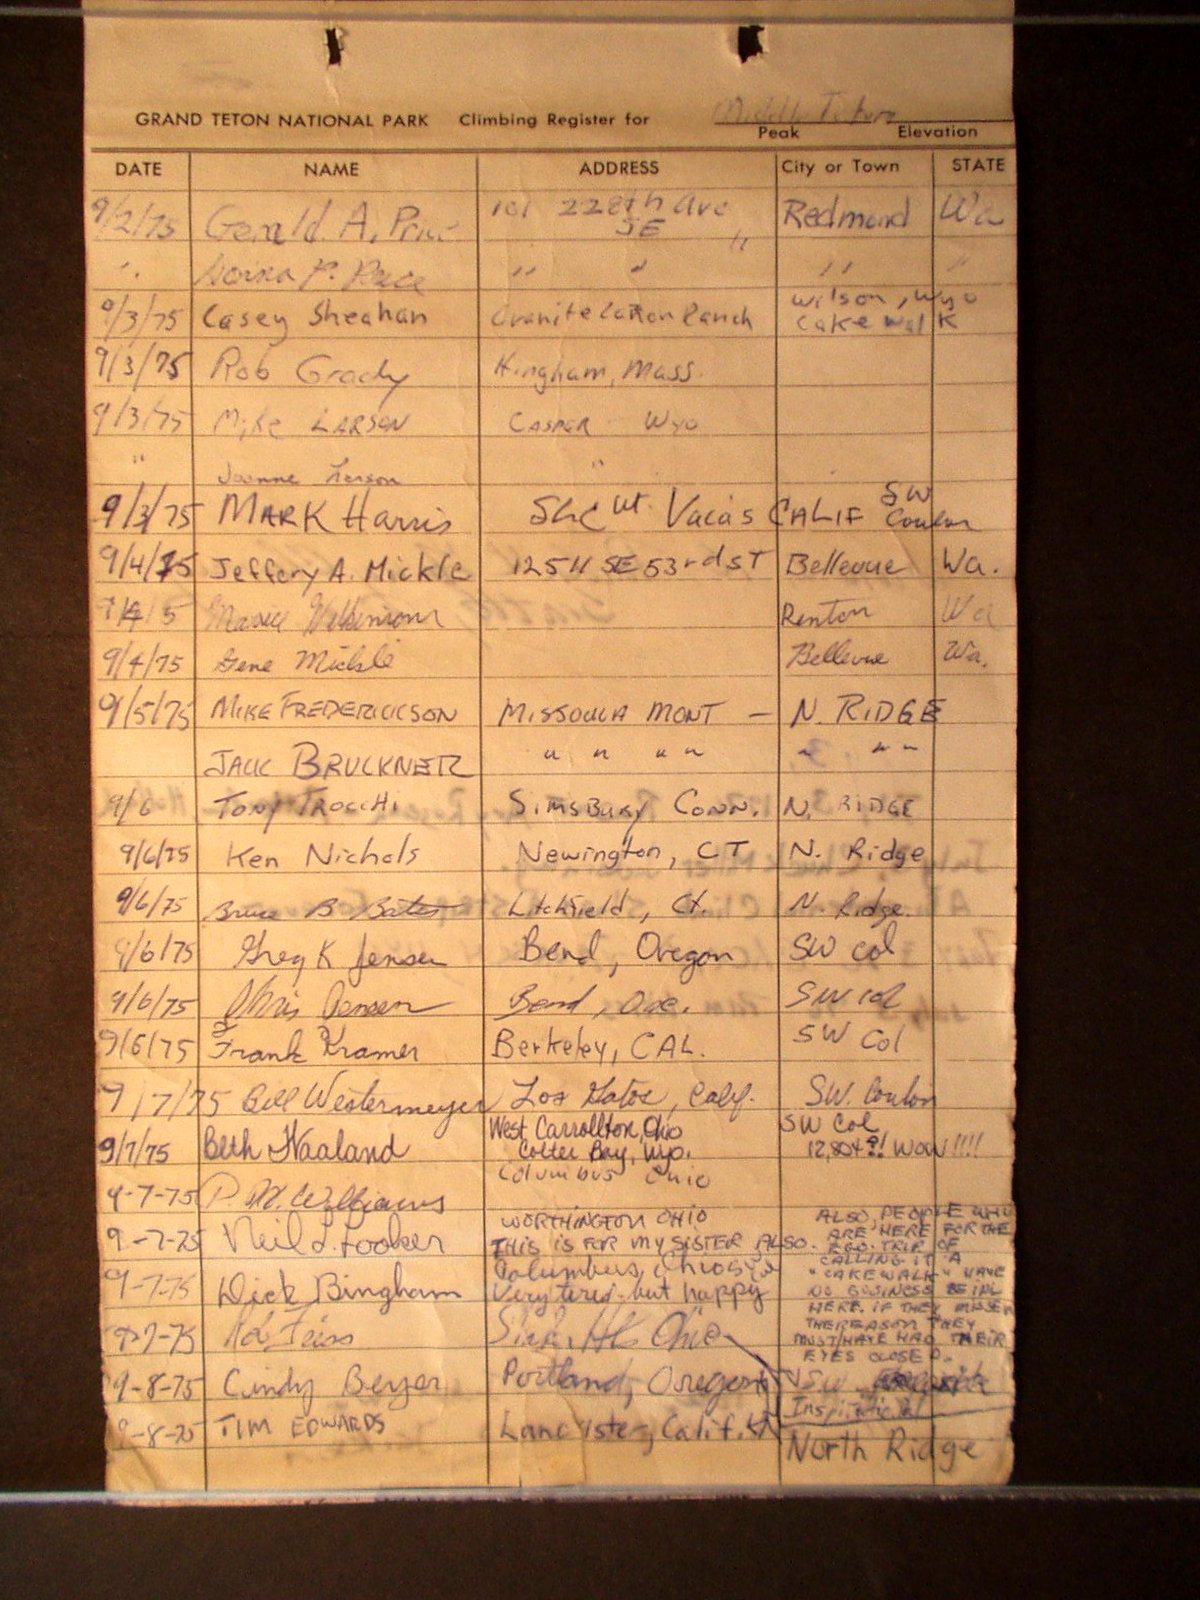 GRAND TETON NATIONAL PARK Climbing Register for Middle Teton
Peak Elevation
DATE NAME ADDRESS City or Town STATE
9/2/75 Gerald A. Price 101 228th Ave SE Redmond Wa
" P. Price " " " "
9/3/75 Casey Sheahan Ranch Wilson, Wyo
Cake walk
9/3/75 Rob Grady Hingham, Mass.
9/3/75 Mike LARSON CASPER Wyo
" Joanne Larson "
9/3/75 MARK Harris CALIF SW Couloir
9/4/75 Jeffery A. Mickle SE 53rd ST Bellevue Wa.
Renton Wa
9/4/75 Gene Mickle Bellevue Wa.
9/5/75 MIKE FREDERICKSON MISSOULA MONT — N. RIDGE
JACK BRUCKNER " " " " " " "
9/6 TONY TROCCHI SIMSBURY CONN. N. RIDGE
9/6/75 Ken Nichols Newington, CT N. Ridge
9/6/75 Bruce B Bates Litchfield, Ct. N. Ridge.
9/6/75 Greg K Jensen Bend, Oregon SW Col
9/6/75 Chris Jensen Bend, Ore. SW Col
9/6/75 Frank Kramer Berkeley, CAL. SW Col
9/7/75 Bill Westermeyer Los Gatos, Calif. SW. Couloir
9/7/75 Beth Haaland West Carrollton, Ohio
Colter Bay, Wyo. SW Col
12,804 ?! WOW!!!!
9-7-75 P. M. Williams Columbus Ohio
9-7-75 Neil J. Fooker WORTHINGTON OHIO
THIS IS FOR MY SISTER ALSO.
9-7-75 Dick Bingham Columbus, Ohio
Very tired - but happy
ALSO, PEOPLE WHO
ARE HERE FOR THE
EGO-TRIP OF
CALLING IT A
"CAKEWALK" HAVE
NO BUSINESS BEING
HERE. IF THEY MISSED
THE REASON THEY
MUST HAVE HAD THEIR
EYES CLOSED.
9-7-75 Ohio
9-8-75 Cindy Beyer Portland, Oregon SW
9-8-75 TIM EDWARDS Lancaster, Calif. North Ridge